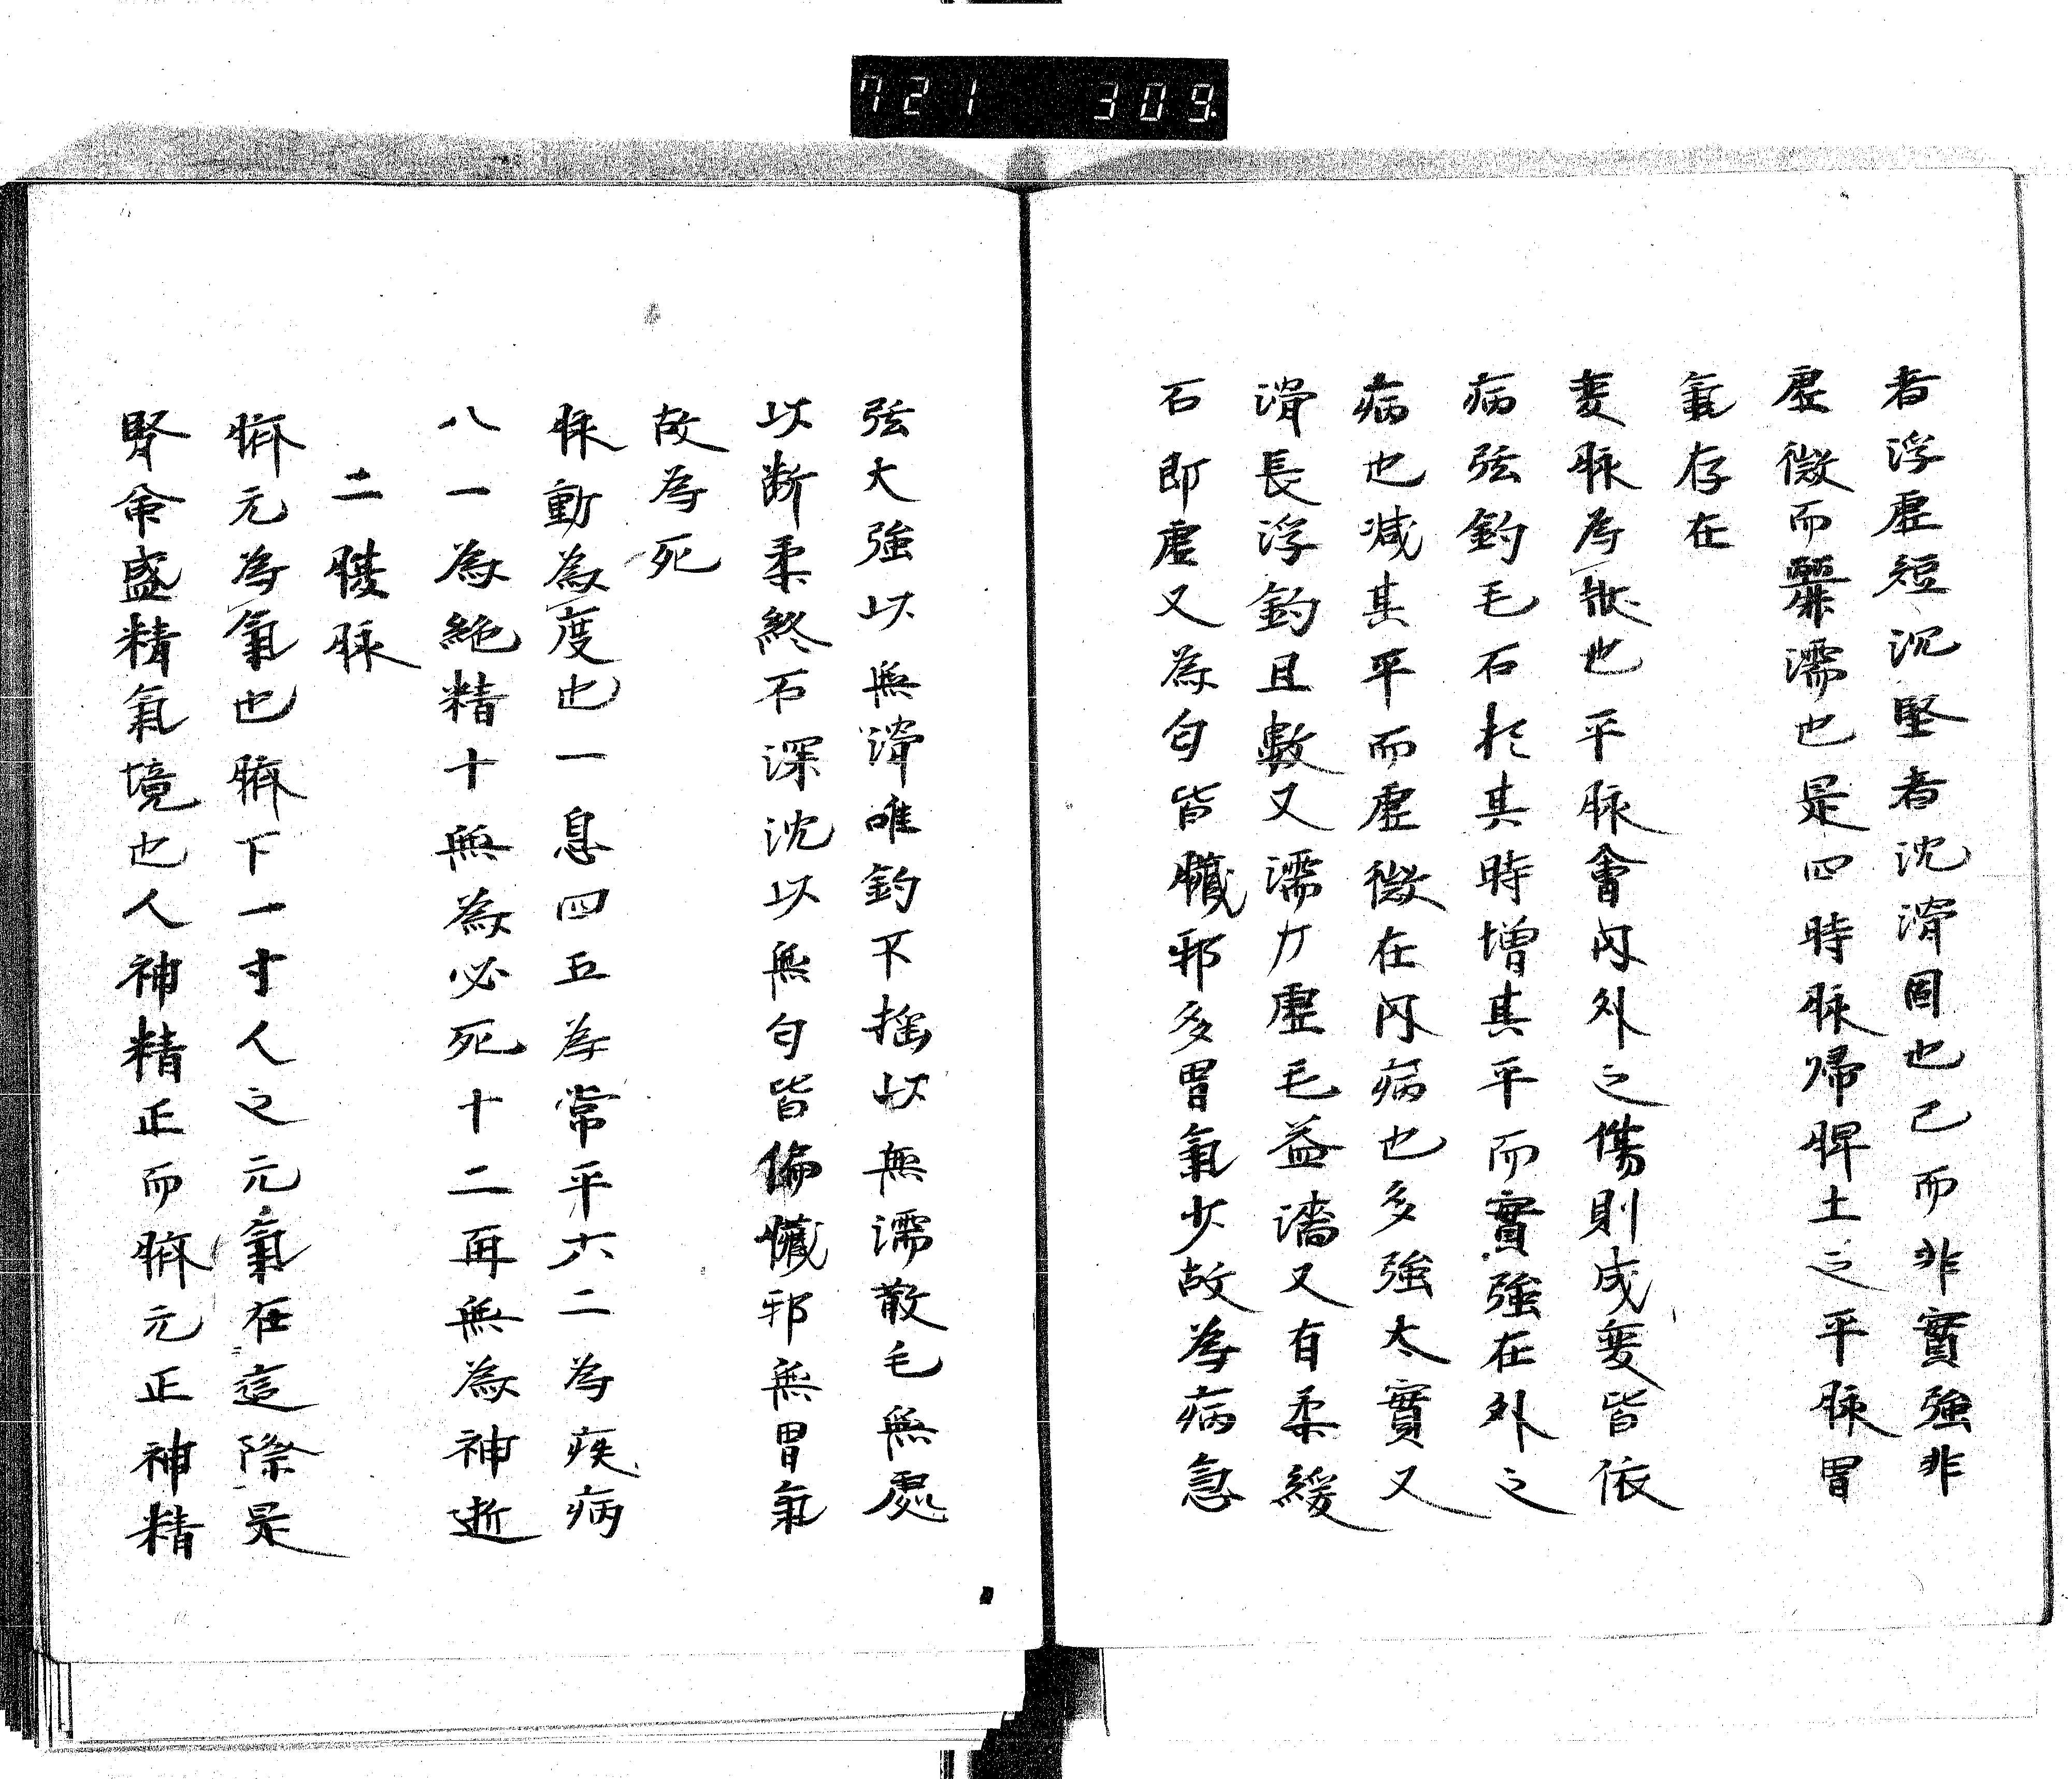 721 309
者浮虛短沉堅者沈滑固也己而非實強非
虛微而麤濡也是四時脉歸脾土之平脉胃
氣存在
変脉為状也平脉會内外之傷則成変皆依
病弦鈎毛石於其時増其平而實強在外之
病也減其平而虛微在内病也多強太實又
滑長浮鈎且數又濡力虛毛益濇又有柔緩
石即虛又為匀皆臟邪多胃氣少故為病急
弦大強以無滑唯鈎不揺以無濡散毛無處
以断柔終石深沈以無匀皆偏臓邪無胃氣
故為死
脉動為度也一息四五為常平六二為疾病
八一為絶精十無為必死十二再無為神逝
二腹脉
臍元為氣也臍下一寸人之元氣在這際是
腎命盛精氣境也人神精正而臍元正神精